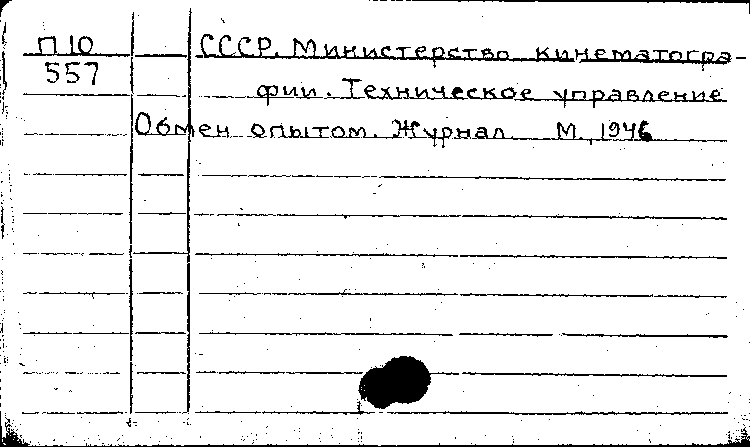 П 10 СССР. Министерство кинематогра-
557 фии. Техническое управление
Обмен опытом. Журнал М., 1946